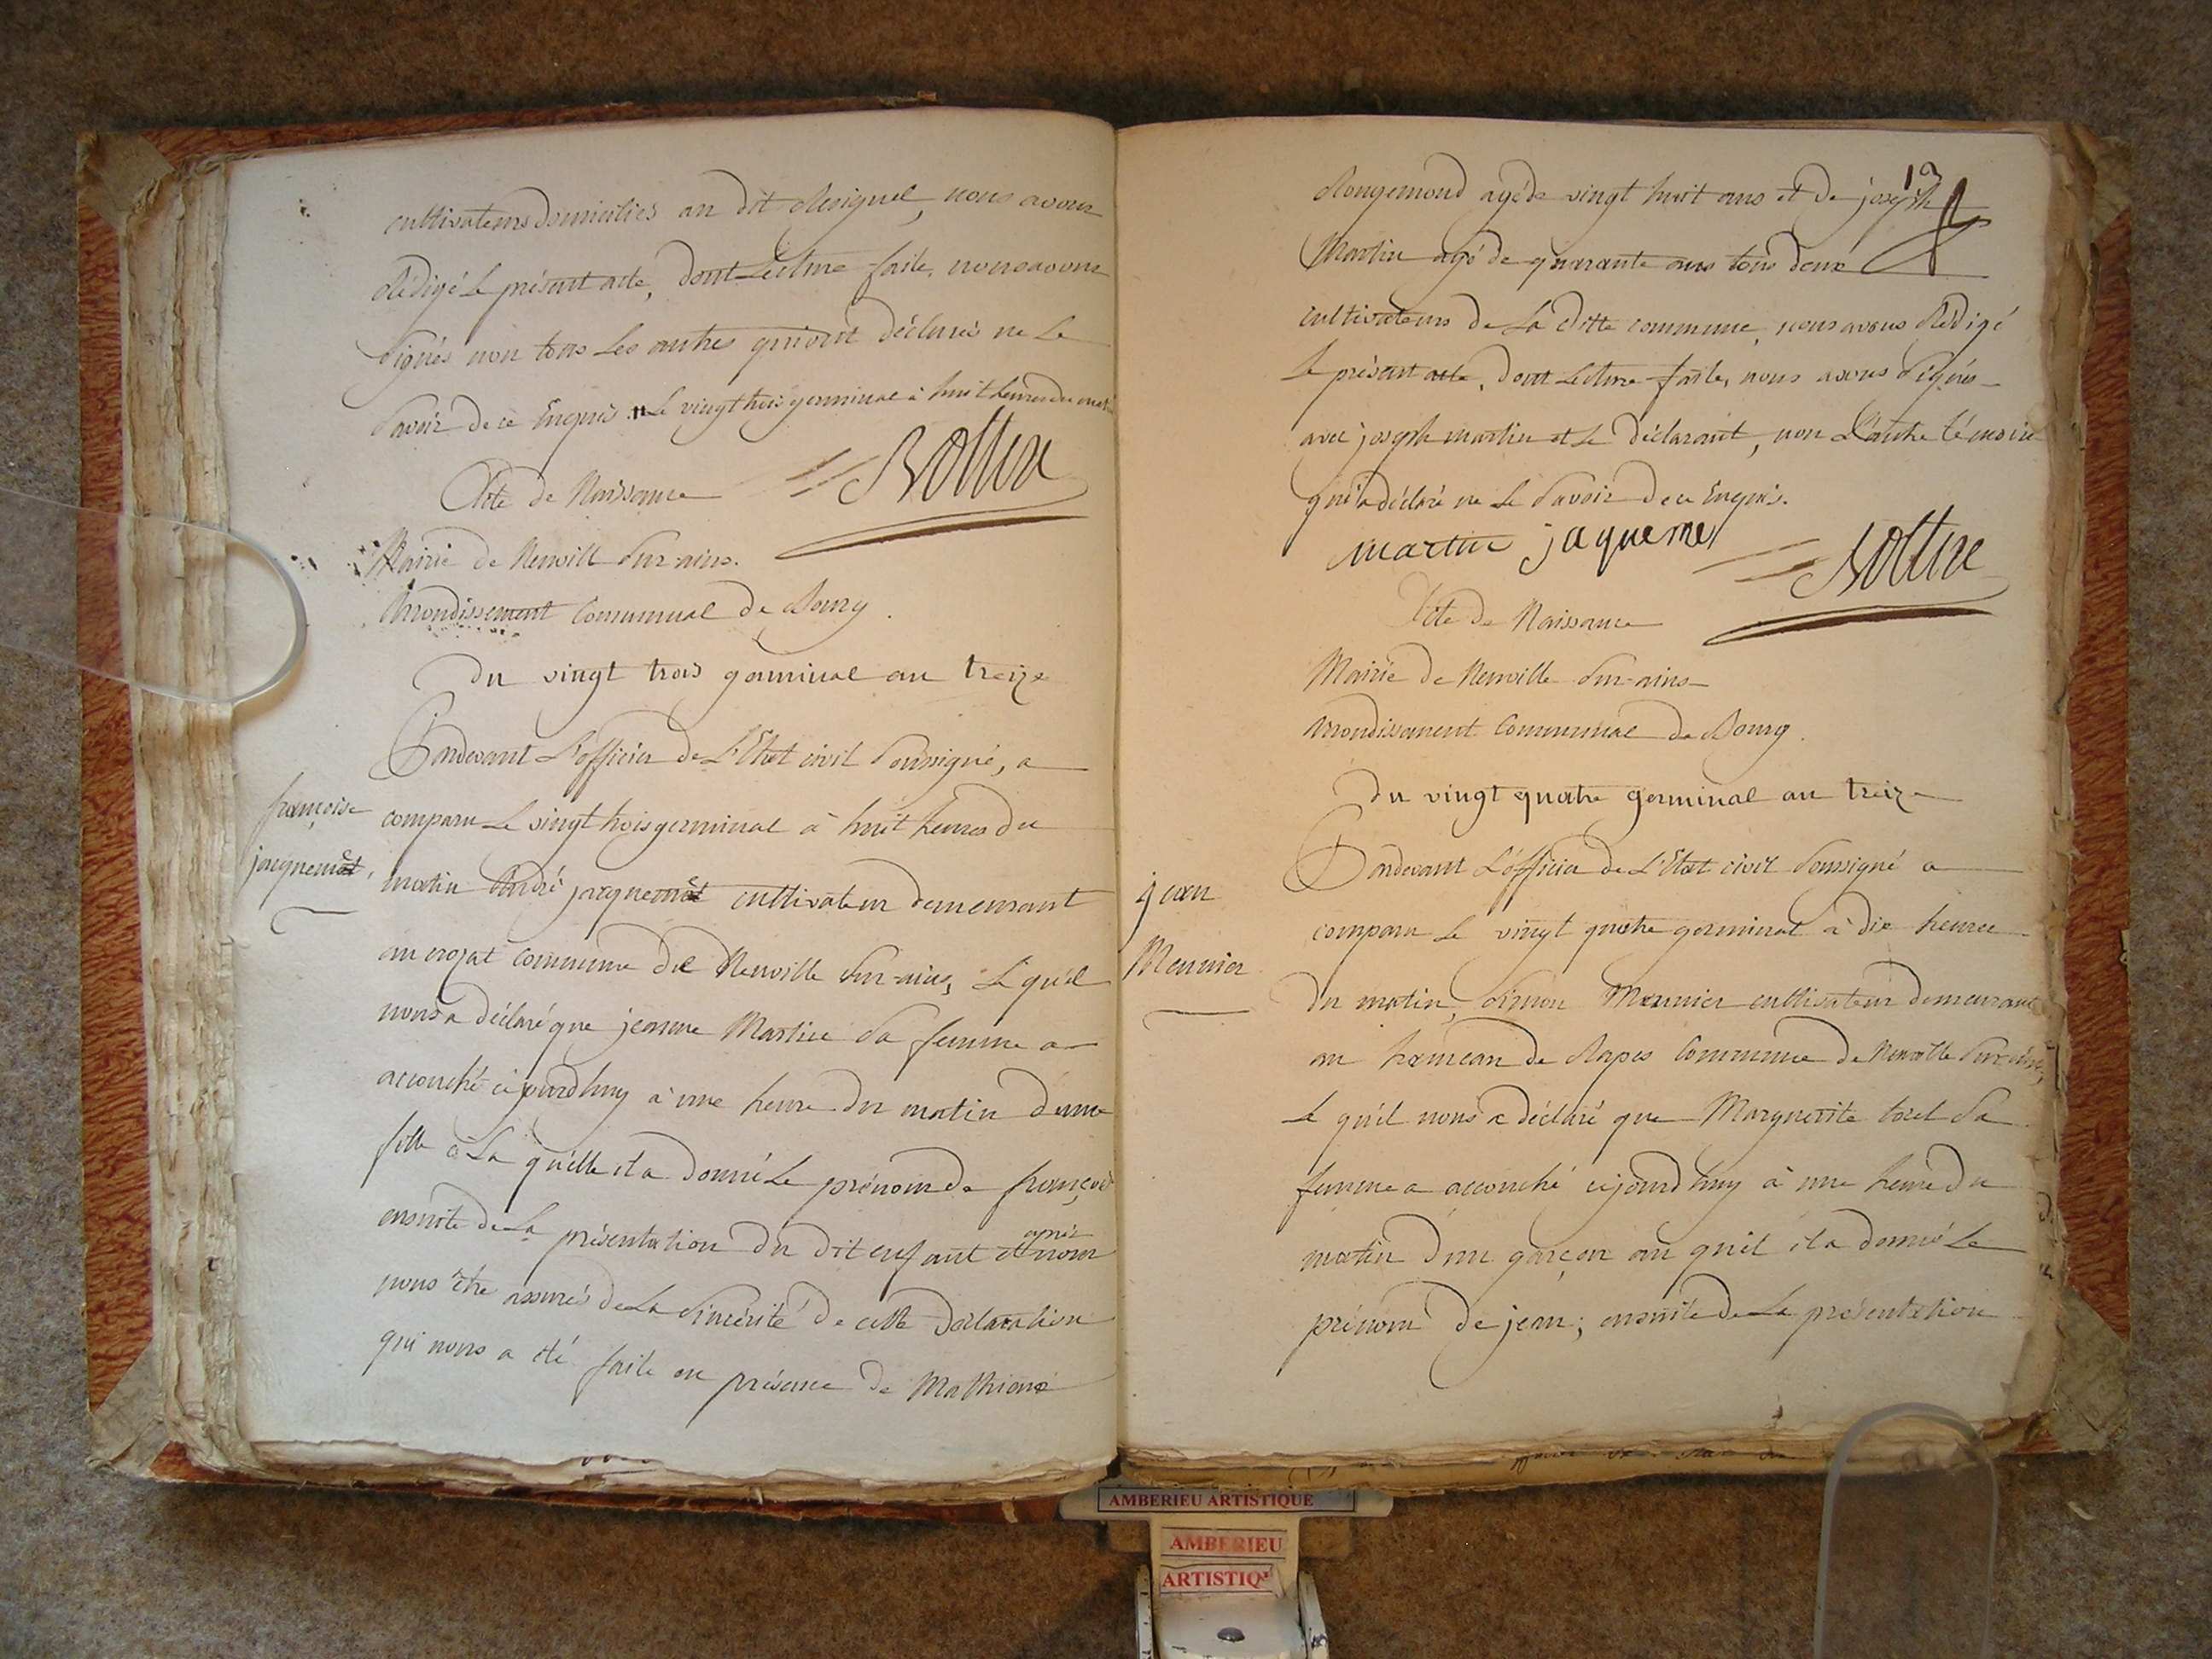 cultivateurs domiciliés au dit Resignel, nous avons
Rédigé le présent acte, dont Lecture faite, nous avons
Signés non tous les autres qui ont déclarés ne le
Savoir de ce Enquis. Le vingt trois germinal à huit heures du matin
Acte de Naissance Rottin
Mairie de Neuvill Sur-ains.
Arrondissement Communal de Bourg.
Du vingt trois germinal an treize
Pardevant L'officier de L'Etat civil Soussigné, a
françoise
comparu Le vingt trois germinal à huit heures du
jacquemet,
matin André jacquemet cultivateur demeurant
au crozat commune de Neuville Sur-ains, Le quel
nous a déclaré que jeanne Martin Sa femme a
accouché cejourdhuy à une heure du matin d'une
fille à La qu'elle il a donné Le prénom de françoise
ensuite de La présentation du dit enfant et après nous
nous être assurés de La Sincérité de cette Déclaration
qui nous a été faite en présence de Mathieux
12
Rougemond agé de vingt huit ans et de joseph
Martin agé de quarante ans tous deux
cultivateurs de La ditte commune, nous avons Rédigé
Le présent acte, dont Lecture faite, nous avons Signés
avec joseph martin et Le déclarant, non L'autre témoin
qui a déclaré ne Le Savoir de ce Enquis.
martin jaquemet Rottin
Acte de Naissance
Mairie de Neuville Sur-ains
Arrondissement Communal de Bourg.
Du vingt quatre germinal an treize
Pardevant L'officier de L'Etat civil Soussigné a
jean
comparu Le vingt quatre germinal à dix heures
Meunier
du matin, Simon Meunier cultivateur demeurant
au hameau de Rapes Commune de Neuville Sur-ains,
Le qu'el nous a déclaré que Marguerite torel Sa
femme a accouché cejourdhuy à une heure du
matin d'un garçon au qu'el il a donné Le
prénom de jean; ensuite de La présentation
AMBERIEU ARTISTIQUE
AMBERIEU
ARTISTIQ